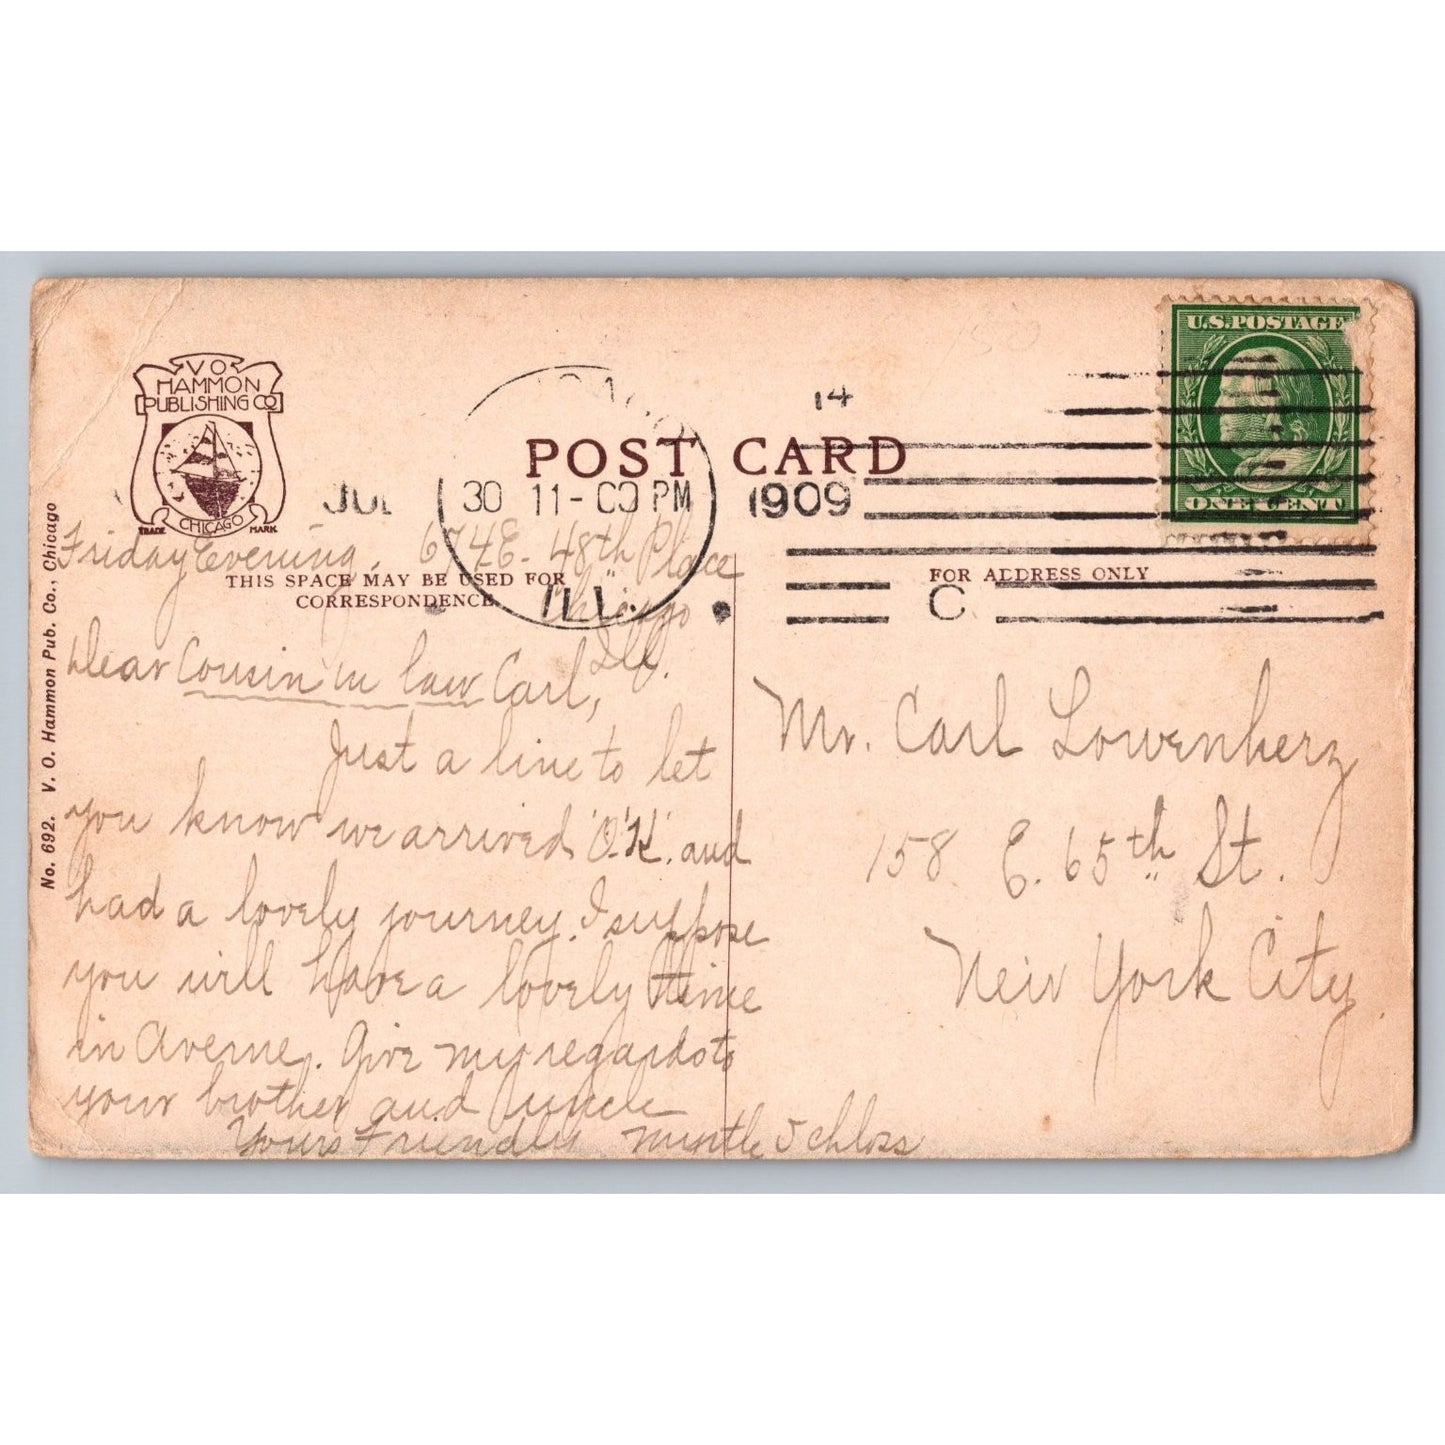 V O
HAMMON
PUBLISHING CO
CHICAGO
TRADE MARK
No. 692. V. O. Hammon Pub. Co., Chicago
POST CARD
JUL 30 11-00 PM 1909
14
ILL.
C
U.S. POSTAGE
ONE CENT
THIS SPACE MAY BE USED FOR
CORRESPONDENCE
FOR ADDRESS ONLY
Friday Evening. 674 E. 48th Place
Chicago
Ill.
Dear Cousin in law Carl,
Just a line to let
you know we arrived 'O.'K'. and
had a lovely journey. I suppose
you will have a lovely time
in Averne. Give my regards to
your brother and uncle
Yours Friendly Myrtle Schloss
Mr. Carl Lowenherz
158 E. 65th St.
New York City